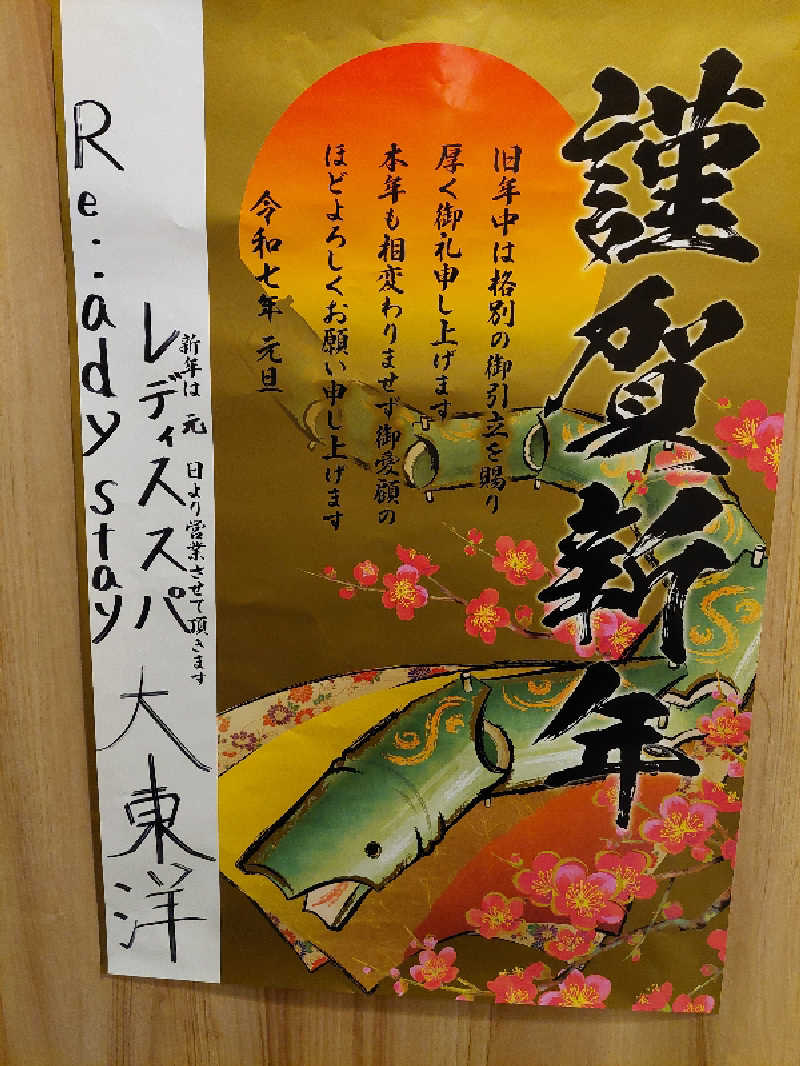 謹賀新年
旧年中は格別の御引立を賜り
厚く御礼申し上げます
本年も相変わりませず御愛顧の
ほどよろしくお願い申し上げます
令和七年 元旦
新年は 元 日より営業させて頂きます
レディススパ 大東洋
Re:ady stay